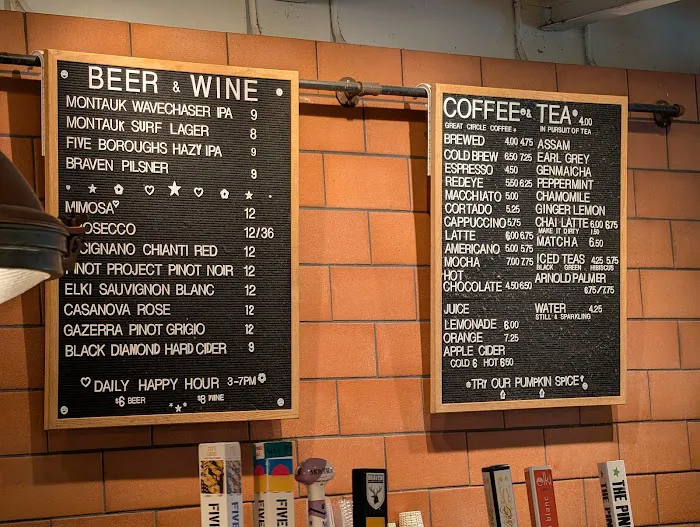 BEER & WINE
MONTAUK WAVECHASER IPA 9
MONTAUK SURF LAGER 8
FIVE BOROUGHS HAZY IPA 9
BRAVEN PILSNER 9
MIMOSA 12
OSECCO 12/36
CIGNANO CHIANTI RED 12
PINOT PROJECT PINOT NOIR 12
ELKI SAUVIGNON BLANC 12
CASANOVA ROSE 12
GAZERRA PINOT GRIGIO 12
BLACK DIAMOND HARD CIDER 9
DAILY HAPPY HOUR 3-7PM
$6 BEER $8 WINE
COFFEE & TEA 4.00
GREAT CIRCLE COFFEE IN PURSUIT OF TEA
BREWED 4.00 4.75
COLD BREW 6.50 7.25
ESPRESSO 4.50
REDEYE 5.50 6.25
MACCHIATO 5.00
CORTADO 5.25
CAPPUCCINO 5.75
LATTE 6.00 6.75
AMERICANO 5.00 5.75
MOCHA 7.00 7.75
HOT
CHOCOLATE 4.50 6.50
ASSAM
EARL GREY
GENMAICHA
PEPPERMINT
CHAMOMILE
GINGER LEMON
CHAI LATTE 6.00 6.75
MAKE IT DIRTY 1.50
MATCHA 6.50
ICED TEAS 4.25 5.75
BLACK GREEN HIBISCUS
ARNOLD PALMER
6.75/7.75
JUICE
LEMONADE 6.00
ORANGE 7.25
APPLE CIDER
COLD 6 HOT 6.50
WATER 4.25
STILL & SPARKLING
TRY OUR PUMPKIN SPICE
FIVE
FIVE
FIVE
BRAVEN
THE PIN